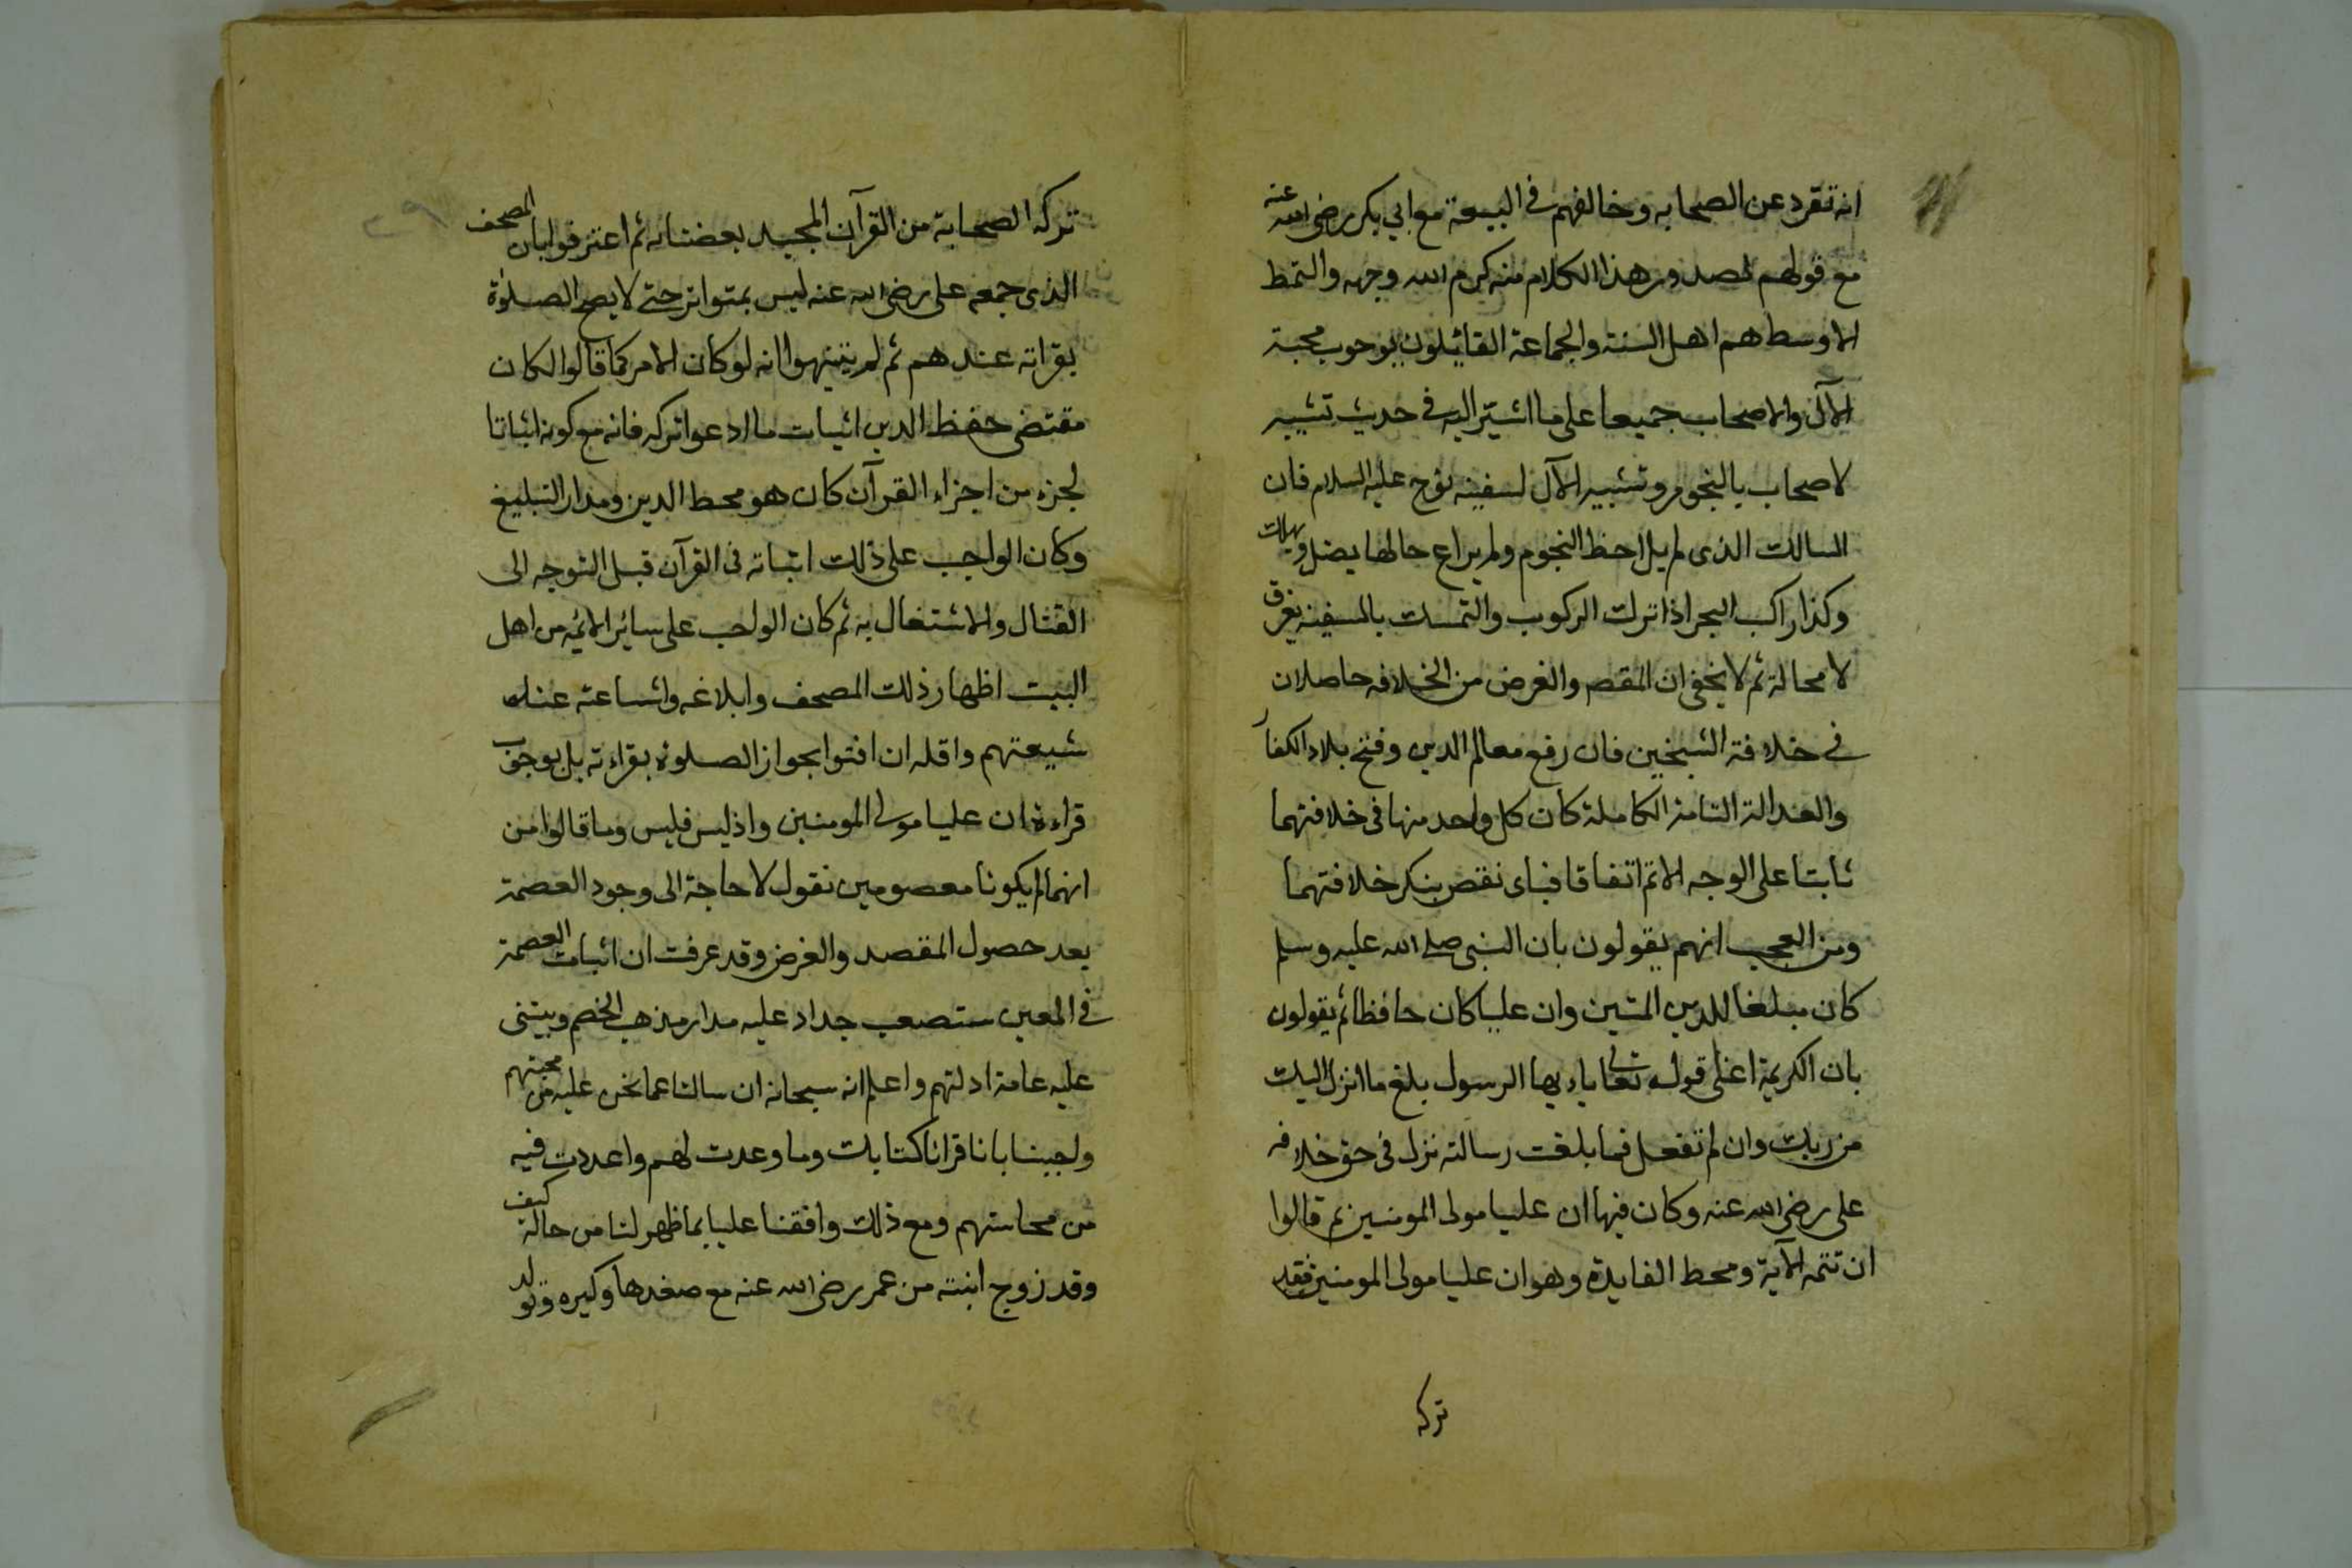 انه تفرد عن الصحابه وخالفهم في البيعة مع ابي بكر رضى الله عنه
مع قولهم لصدور هذا الكلام منه كرم الله وجهه والنمط
الاوسط هم اهل السنة والجماعة القائلون بوجوب محبة
الآل والاصحاب جميعا على ما اشير اليه في حديث تشبيه
لاصحاب بالنجوم وتشبيه الآل لسفينه نوح عليه السلام فان
السالك الذى لم يلاحظ النجوم ولم يراع حالها يضل ويهلك
وكذا راكب البحر اذا ترك الركوب والتمسك بالسفينه يغرق
لا محالة ثم لا يخفى ان المقصد والغرض من الخلافه حاصلان
في خلافة الشيخين فان رفع معالم الدين وفتح بلاد الكفار
والعدالة التامة الكاملة كان كل واحد منها فى خلافتهما
ثابتا على الوجه الاتم اتفاقا فباى نقص ينكر خلافتهما
ومن العجب انهم يقولون بان النبى صلى الله عليه وسلم
كان مبلغا للدين المتين وان عليا كان حافظا ثم يقولون
بان الكريمة اعنى قوله تعالى ياءيها الرسول بلغ ما انزل اليك
من ربك وان لم تفعل فما بلغت رسالته نزل فى حق خلافه
على رضى الله عنه وكان فيها ان عليا مولى المومنين ثم قالوا
ان تتمه الآية ومحط الفايدة وهو ان عليا مولى المومنين فقد
تركه
تركه الصحابة من القرآن المجيد بعضا به ثم اعترفوا بان المصحف
الذى جمعه على رضى الله عنه ليس بمتواتر حتى لا يصح الصلوة
بقراته عندهم ثم لم يتنبهوا انه لو كان الامر كما قالوا لكان
مقتضى حفظ الدين اثبات ما ادعوا تركه فانه مع كونه اثباتا
لجزء من اجزاء القرآن كان هو محط الدين ومدار التبليغ
وكان الواجب على ذلك اثباته فى القرآن قبل التوجه الى
القتال والاشتغال به ثم كان الواجب على سائر الائمه من اهل
البيت اظهار ذلك المصحف وابلاغه واشاعته عند
شيعتهم واقله ان افتوا بجواز الصلوة بقراءته بل بوجوب
قراءة ان عليا مولى المومنين واذ ليس فليس وما قالوا من
انهما لم يكونا معصومين نقول لا حاجة الى وجود العصمة
بعد حصول المقصد والغرض وقد عرفت ان اثبات العصمة
في المعين ستصعب جدا وعليه مدار مذهب الخصم ويبتنى
عليه عامة ادلتهم واعلم انه سبحانه ان سالنا عما نحن عليه من محبتهم
واجبنا بانا قرانا كتابك وما وعدت لهم واعددت فيه
من محاسنهم ومع ذلك وافقنا عليا بما ظهر لنا من حاله كيف
وقد زوج ابنته من عمر رضى الله عنه مع صغرها وكبره وتولد